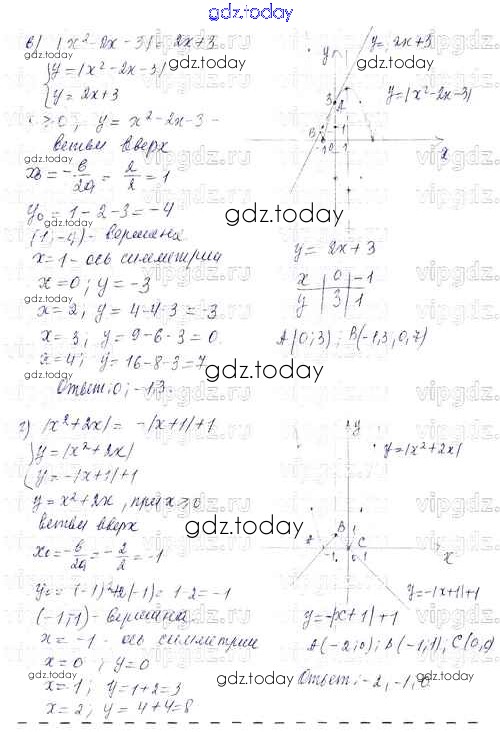 gdz.today
в) |x²-2x-3| = 2x+3
{y=|x²-2x-3|
{y=2x+3
x≥0, y=x²-2x-3 -
ветви вверх
x₀=-в/2a=2/2=1
y₀=1-2-3=-4
(1;-4)- вершина
x=1- ось симметрии
x=0; y=-3
x=2; y=4-4-3=-3
x=3; y=9-6-3=0
x=4; y=16-8-3=7
Ответ: 0; -1,3.
y=2x+3
y=|x²-2x-3|
y
x
A
B
y=2x+3
x 0 -1
y 3 1
A(0;3); B(-1,3; 0,7)
г) |x²+2x|= -|x+1|+1
{y=|x²+2x|
{y=-|x+1|+1
y=x²+2x, при x≥0
ветви вверх
x₀=-в/2a=-2/2=-1
y₀=(-1)²+2(-1)=1-2=-1
(-1;-1)- вершина
x=-1- ось симметрии
x=0; y=0
x=1; y=1+2=3
x=2; y=4+4=8
y
y=|x²+2x|
A
B
C
x
y=-|x+1|+1
y=-|x+1|+1
A(-2;0); B(-1;1), C(0;0)
Ответ: -2,-1,0
gdz.today
vipgdz.ru